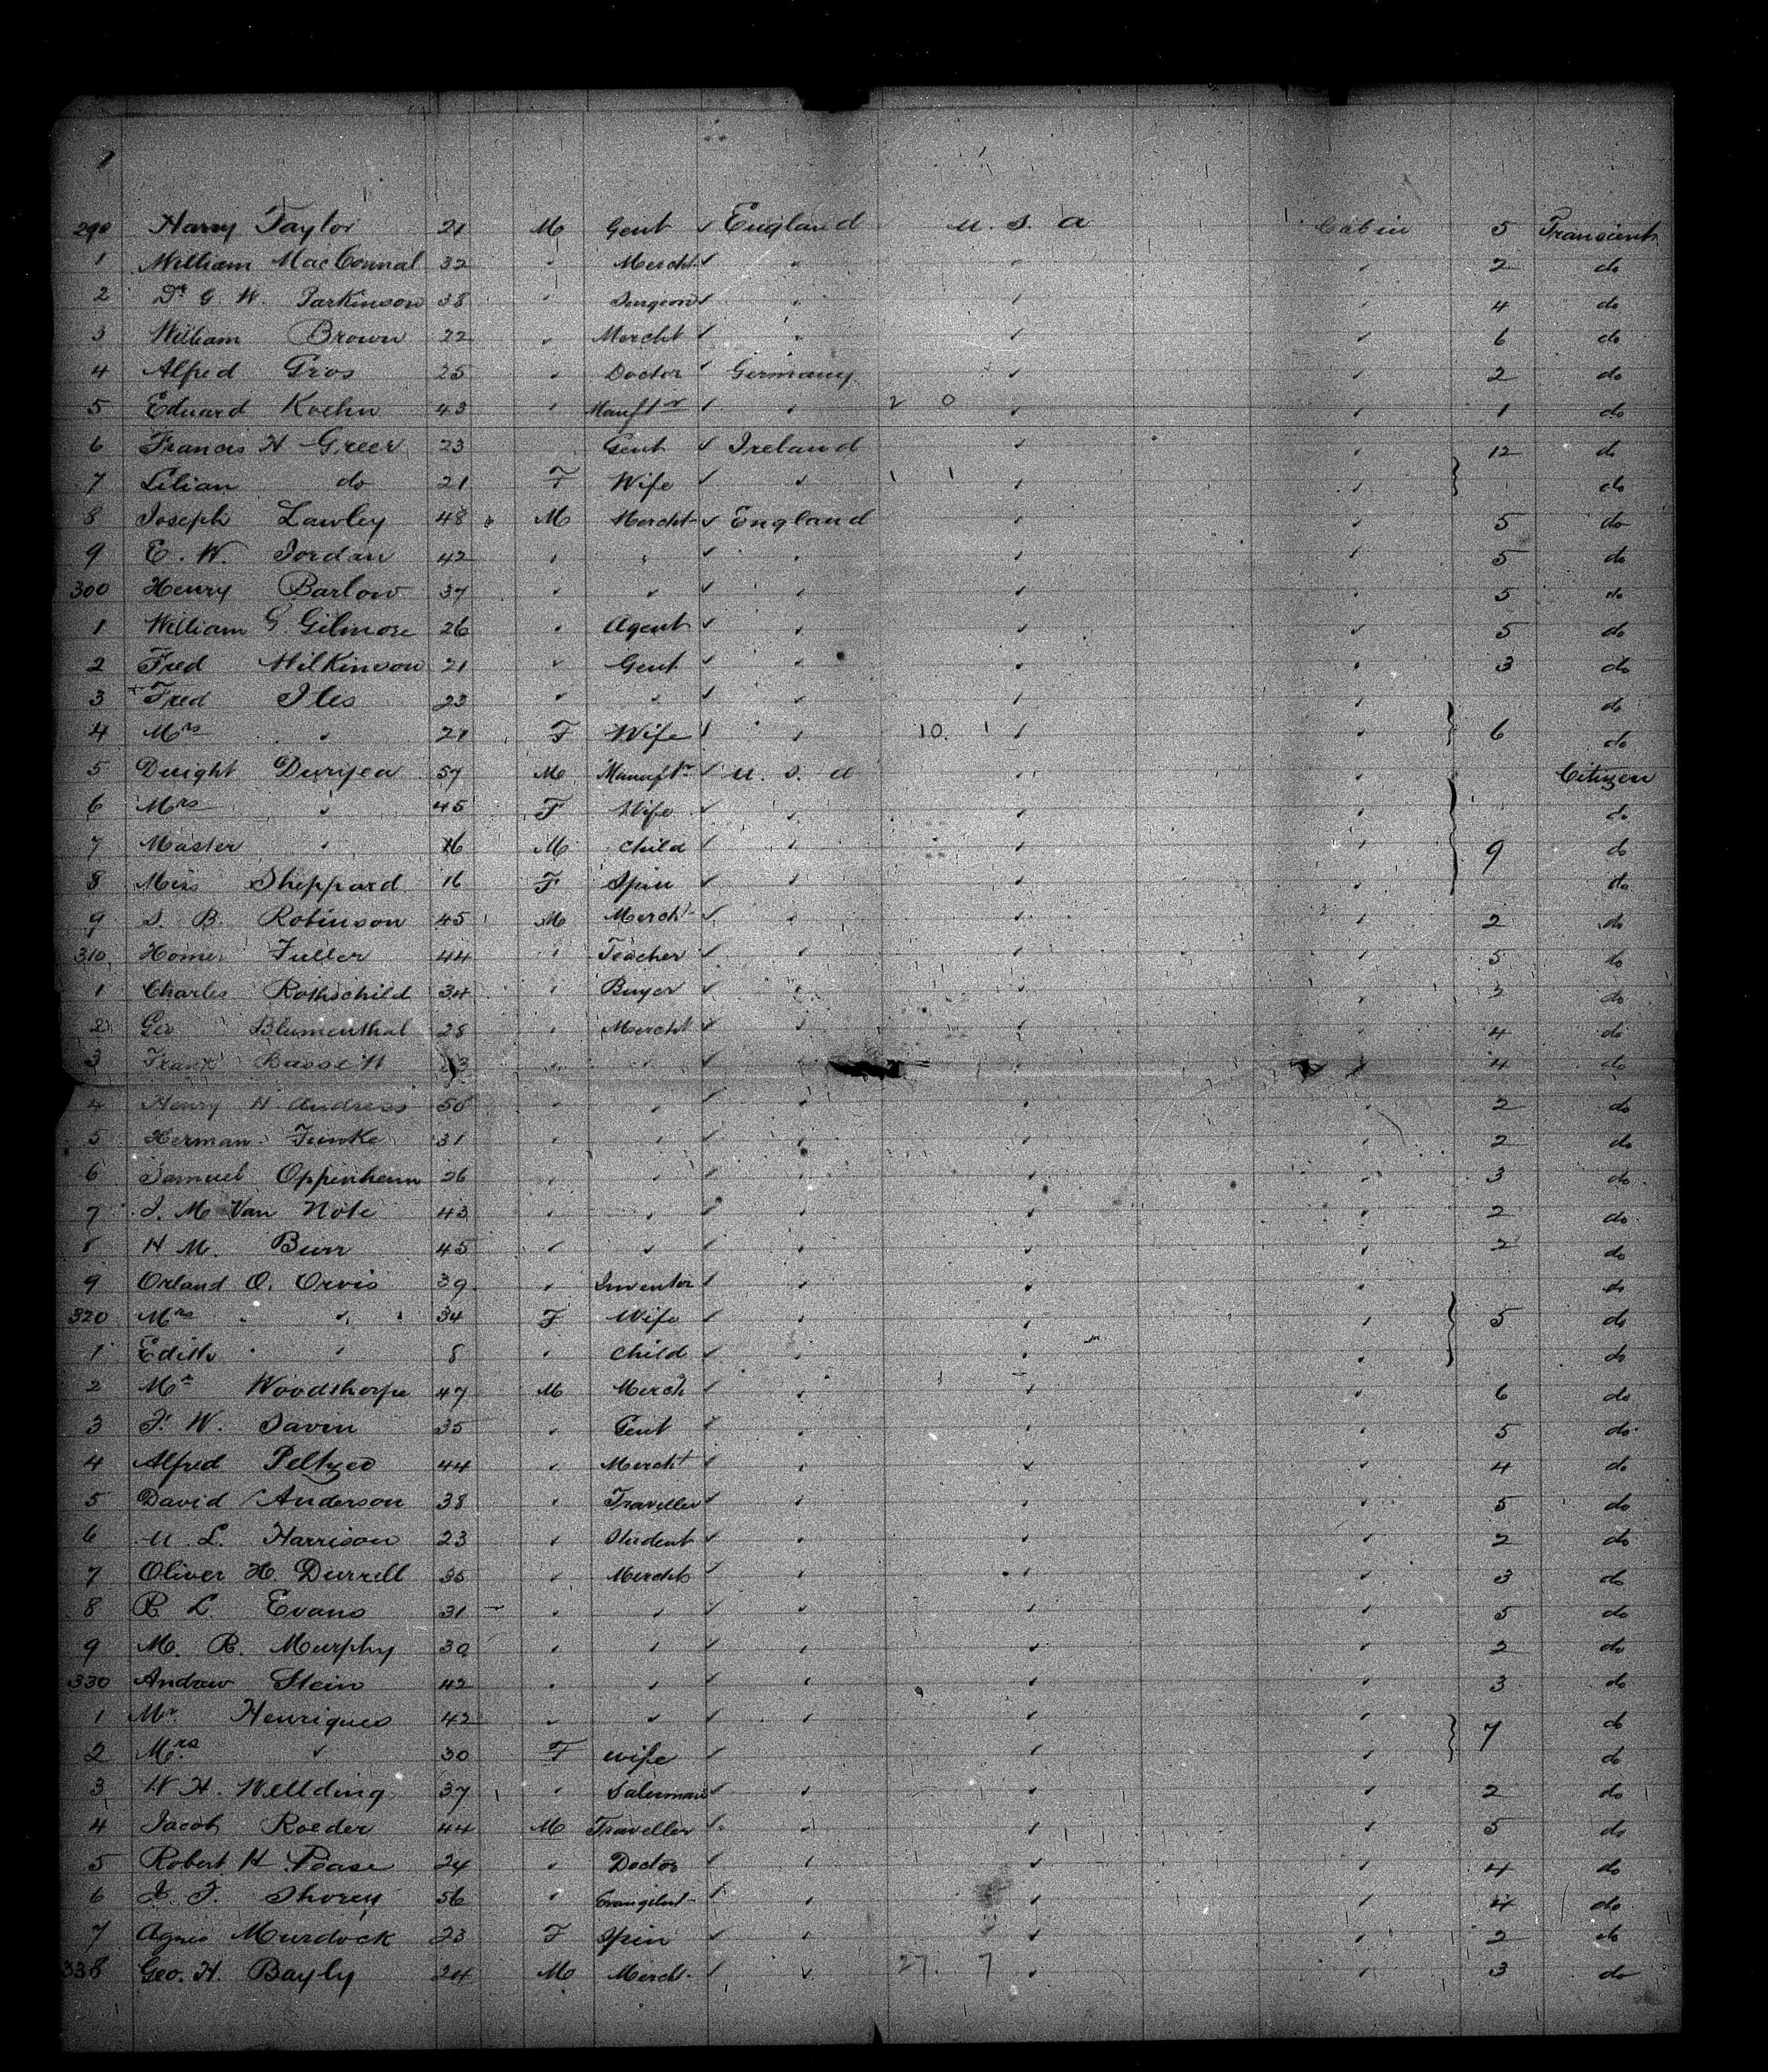 290 Harry Taylor 21 M Gent ✓ England U. S. A Cabin 5 Transient
1 William MacConnal 32 " Mercht ✓ " " " 2 do
2 Dr G W. Parkinson 38 " Surgeon ✓ " " " 4 do
3 William Brown 22 " Mercht ✓ " " " 6 do
4 Alfred Gros 25 " Doctor ✓ Germany " " 2 do
5 Eduard Koehn 43 " Manftr ✓ " 2 0 " " 1 do
6 Francis H Greer 23 Gent ✓ Ireland " " 12 do
7 Lilian do 21 F Wife ✓ " 1 1 " " do
8 Joseph Lawley 48 M Mercht ✓ England " " 5 do
9 E. W. Jordan 42 " " ✓ " " " 5 do
300 Henry Barlow 37 " " ✓ " " " 5 do
1 William G. Gilmore 26 " Agent ✓ " " " 5 do
2 Fred Wilkinson 21 " Gent ✓ " " " 3 do
3 Fred Iles 23 " " ✓ " " " do
4 Mrs " 21 F Wife ✓ " 10. 1 " " 6 do
5 Dwight Duryea 57 M Manuftr ✓ U. S. A " " Citizen
6 Mrs " 45 F Wife ✓ " " " do
7 Master " 16 M Child ✓ " " " 9 do
8 Miss Sheppard 16 F Spin ✓ " " " do
9 S. B. Robinson 45 M Mercht ✓ " " " 2 do
310 Homer Fuller 44 " Teacher ✓ " " " 5 do
1 Charles Rothschild 34 " Buyer ✓ " " " 3 do
2 Geo Blumenthal 28 " Mercht ✓ " " " 4 do
3 Frank Bassett " " ✓ " " 4 do
4 Henry H Andress 50 " " ✓ " " " 2 do
5 Herman Funke 31 " " ✓ " " " 2 do
6 Samuel Oppenheim 26 " " ✓ " " " 3 do
7 J. M Van Note 43 " " ✓ " " " 2 do
8 H M. Burr 45 " " ✓ " " " 2 do
9 Orland O. Orvis 39 " Inventor ✓ " " " do
320 Mrs " " 34 F Wife ✓ " " " 5 do
1 Edith " " 8 " Child ✓ " " " do
2 Mr Woodthorpe 47 M Merch ✓ " " " 6 do
3 F. W. Savin 35 " Gent ✓ " " " 5 do
4 Alfred Peltzer 44 " Mercht ✓ " " " 4 do
5 David Anderson 38 " Traveller ✓ " " " 5 do
6 M L. Harrison 23 " Student ✓ " " " 2 do
7 Oliver H. Durrell 35 " Mercht ✓ " " " 3 do
8 R L. Evans 31 " " ✓ " " " 5 do
9 M. R. Murphy 30 " " ✓ " " " 2 do
330 Andrew Stein 42 " " ✓ " " " 3 do
1 Mr Henriques 42 " " ✓ " " " 7 do
2 Mrs " 30 F wife ✓ " " do
3 W H. Wellding 37 " Salesman ✓ " " " 2 do
4 Jacob Roeder 44 M Traveller ✓ " " " 5 do
5 Robert H Pease 24 " Doctor ✓ " " " 4 do
6 J. T. Shorey 56 " Evangelist ✓ " " " 4 do
7 Agnes Murdock 23 F Spin ✓ " " " 2 do
338 Geo. H. Bayly 24 M Mercht ✓ " 27. 7 " " 3 do